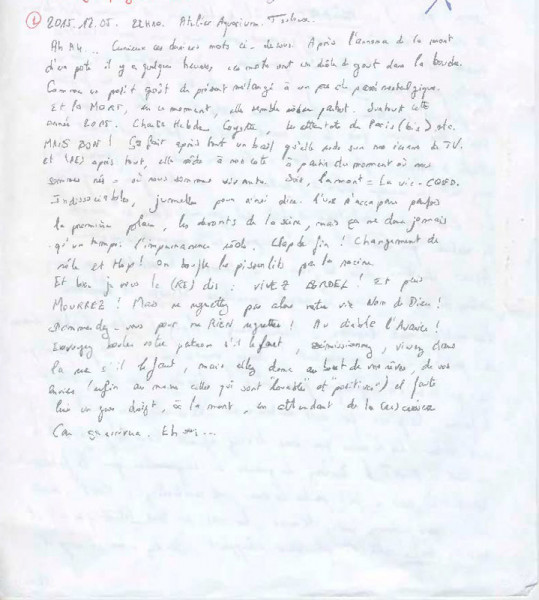 2015.12.05. 22H20. Atelier Aquarium.
Ah Ah... Curieux ces derniers mots ci-dessus. Après l'annonce de la mort
d'un pote il y a quelques heures, ces mots ont un drôle de goût dans la bouche.
Comme un petit goût de présent mélangé à un peu de passé nostalgique.
Et la MORT, en ce moment, elle semble partout. Surtout cette
année 2015. Charlie Hebdo, Coyotte, les attentats de Paris (bis) etc.
MAIS BON ! Ça fait après tout un bail qu'elle rode sur nos écrans de T.V.
et (RE) après tout, elle à nos côtés à partir du moment où nous
sommes nés = où nous sommes vivants. Soit, la mort = La vie - CQFD.
Indissociables, jumelles pour ainsi dire. L'une s'accapare parfois
le premier plan, les devants de la scène, mais ça ne dure jamais
qu'un temps. L'impermanence. Clap de fin ! Changement de
rôle et Hop ! On bouffe les pissenlits par la racine.
Et bien je vous le (RE) dis : VIVEZ BORDEL ! Et puis
MOURREZ ! Mais ne regrettez pas alors votre vie Nom de Dieu !
vous pour ne RIEN regretter ! Au diable l'Avarice !
Envoyez bouler votre patron s'il le faut, démissionnez, vivez dans
la rue s'il le faut, mais allez donc au bout de vos rêves, de vos
envies (enfin au moins celles qui sont "louables" et "positives") et faites
lui un gros doigt, à la mort, en attendant de la (re)croiser
Eh oui...